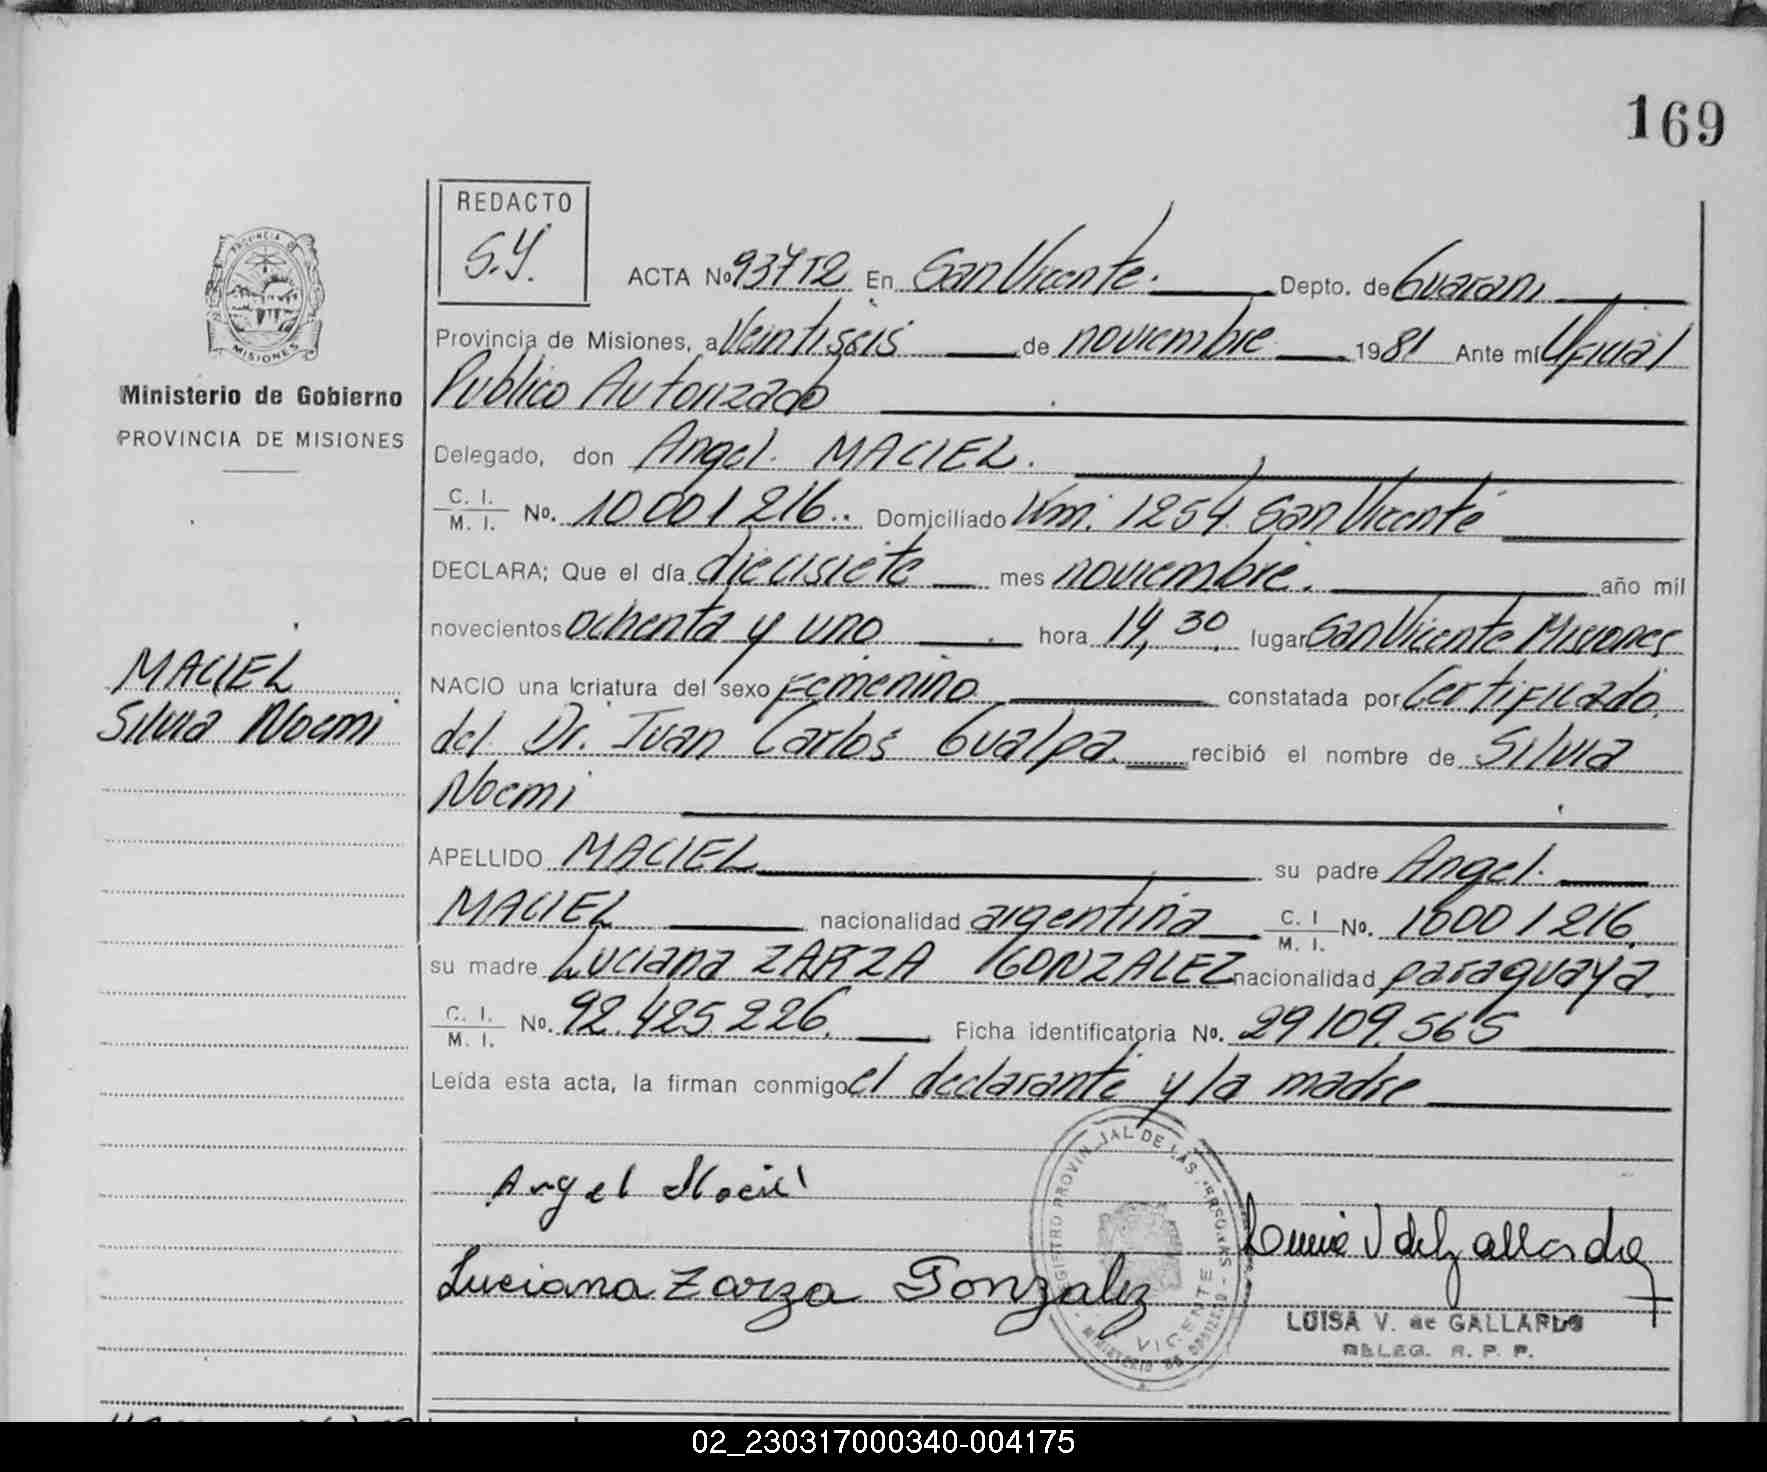 169
REDACTO
S.Y.
ACTA No 937T2 En San Vicente. Depto. de Guarani
PROVINCIA DE
MISIONES
Provincia de Misiones, a Veintiseis de noviembre 1981 Ante mi Oficial
Ministerio de Gobierno
Publico Autorizado
PROVINCIA DE MISIONES
Delegado, don Angel. MACIEL.
C. I. M. I. No. 10001216.. Domiciliado Km. 1254 San Vicente
DECLARA; Que el día diecisiete mes noviembre. año mil
novecientos ochenta y uno hora 14,30. lugar San Vicente Misiones
MACIEL
NACIO una criatura del sexo Femenino constatada por Certificado.
Silvia Noemi
del Dr. Juan Carlos Gualpa. recibió el nombre de Silvia
Noemi
APELLIDO MACIEL su padre Angel.
MACIEL nacionalidad argentina C. I M. I. No. 10001216.
su madre Luciana ZARZA GONZALEZ nacionalidad paraguaya.
C. I. M. I. No. 92.425.226. Ficha identificatoria No. 29109.565
Leída esta acta, la firman conmigo el declarante y la madre
REGISTRO PROVINCIAL DE LAS PERSONAS
VICENTE
MINISTERIO DE GOBIERNO
Angel Maciel
Luciana Zarza Gonzalez
LUISA V. de GALLARDO
DELEG. R. P. P.
02_230317000340-004175